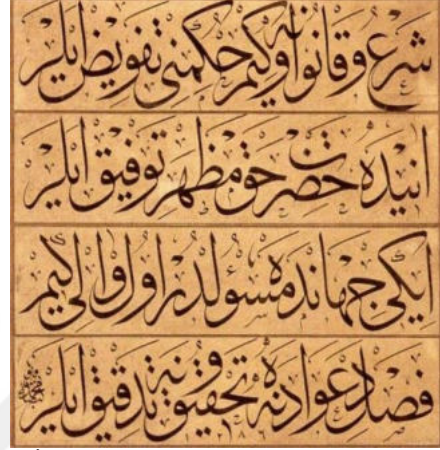 شرع و قانونه اوكيم حكمنى تفويض ايلر
انيده حضرت حق مظهر توفيق ايلر
ايكى جهانده مسئولدر اول والى كيم
فصل دعواده نه تحقيق و نه تدقيق ايلر
١٢٨٦